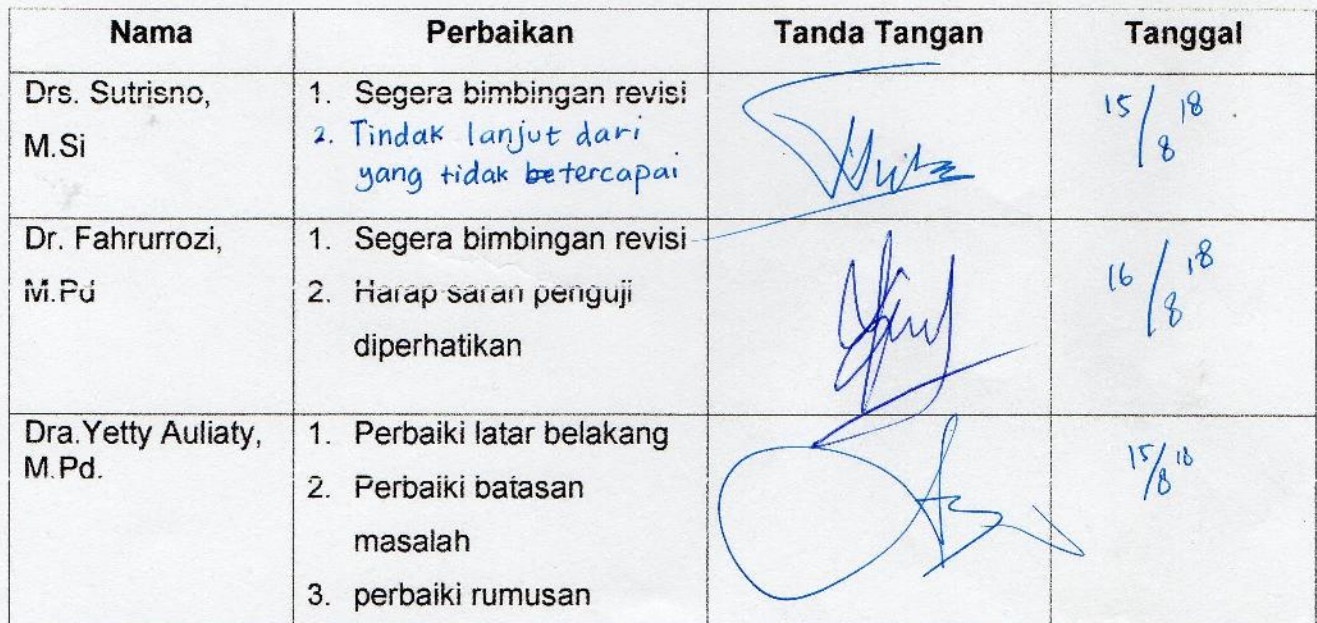 Nama Perbaikan Tanda Tangan Tanggal
Drs. Sutrisno,
M.Si
1. Segera bimbingan revisi
2. Tindak lanjut dari
yang tidak tercapai
15/8 18
Dr. Fahrurrozi,
M.Pd
1. Segera bimbingan revisi
2. Harap saran penguji
diperhatikan
16/8 18
Dra.Yetty Auliaty,
M.Pd.
1. Perbaiki latar belakang
2. Perbaiki batasan
masalah
3. perbaiki rumusan
15/8 18